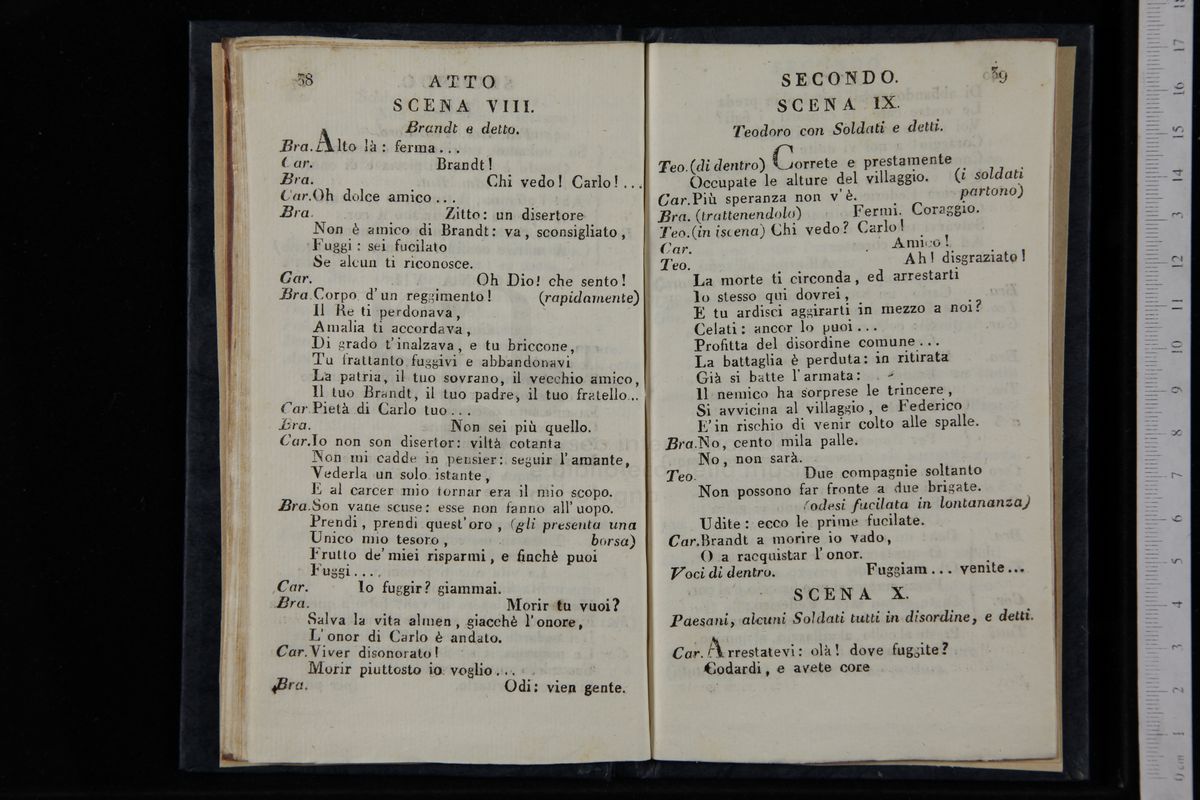 38
ATTO
SCENA VIII.
Brandt e detto.
Bra. Alto là: ferma...
Car. Brandt!
Bra. Chi vedo! Carlo!...
Car. Oh dolce amico...
Bra. Zitto: un disertore
Non è amico di Brandt: va, sconsigliato,
Fuggi: sei fucilato
Se alcun ti riconosce.
Car. Oh Dio! che sento!
Bra. Corpo d'un reggimento! (rapidamente)
Il Re ti perdonava,
Amalia ti accordava,
Di grado t'inalzava, e tu briccone,
Tu frattanto fuggivi e abbandonavi
La patria, il tuo sovrano, il vecchio amico,
Il tuo Brandt, il tuo padre, il tuo fratello...
Car. Pietà di Carlo tuo...
Bra. Non sei più quello.
Car. Io non son disertor: viltà cotanta
Non mi cadde in pensier: seguir l'amante,
Vederla un solo istante,
E al carcer mio tornar era il mio scopo.
Bra. Son vane scuse: esse non fanno all'uopo.
Prendi, prendi quest'oro, (gli presenta una
Unico mio tesoro, borsa)
Frutto de' miei risparmi, e finchè puoi
Fuggi....
Car. Io fuggir? giammai.
Bra. Morir tu vuoi?
Salva la vita almen, giacchè l'onore,
L'onor di Carlo è andato.
Car. Viver disonorato!
Morir piuttosto io voglio...
Bra. Odi: vien gente.
SECONDO.
39
SCENA IX.
Teodoro con Soldati e detti.
Teo. (di dentro) Correte e prestamente
Occupate le alture del villaggio. (i soldati
Car. Più speranza non v'è. partono)
Bra. (trattenendolo) Fermi. Coraggio.
Teo. (in iscena) Chi vedo? Carlo!
Car. Amico!
Teo. Ah! disgraziato!
La morte ti circonda, ed arrestarti
Io stesso qui dovrei,
E tu ardisci aggirarti in mezzo a noi?
Celati: ancor lo puoi...
Profitta del disordine comune...
La battaglia è perduta: in ritirata
Già si batte l'armata:
Il nemico ha sorprese le trincere,
Si avvicina al villaggio, e Federico
E' in rischio di venir colto alle spalle.
Bra. No, cento mila palle.
No, non sarà.
Teo. Due compagnie soltanto
Non possono far fronte a due brigate.
(odesi fucilata in lontananza)
Udite: ecco le prime fucilate.
Car. Brandt a morire io vado,
O a racquistar l'onor.
Voci di dentro. Fuggiam... venite...
SCENA X.
Paesani, alcuni Soldati tutti in disordine, e detti.
Car. Arrestatevi: olà! dove fuggite?
Codardi, e avete core